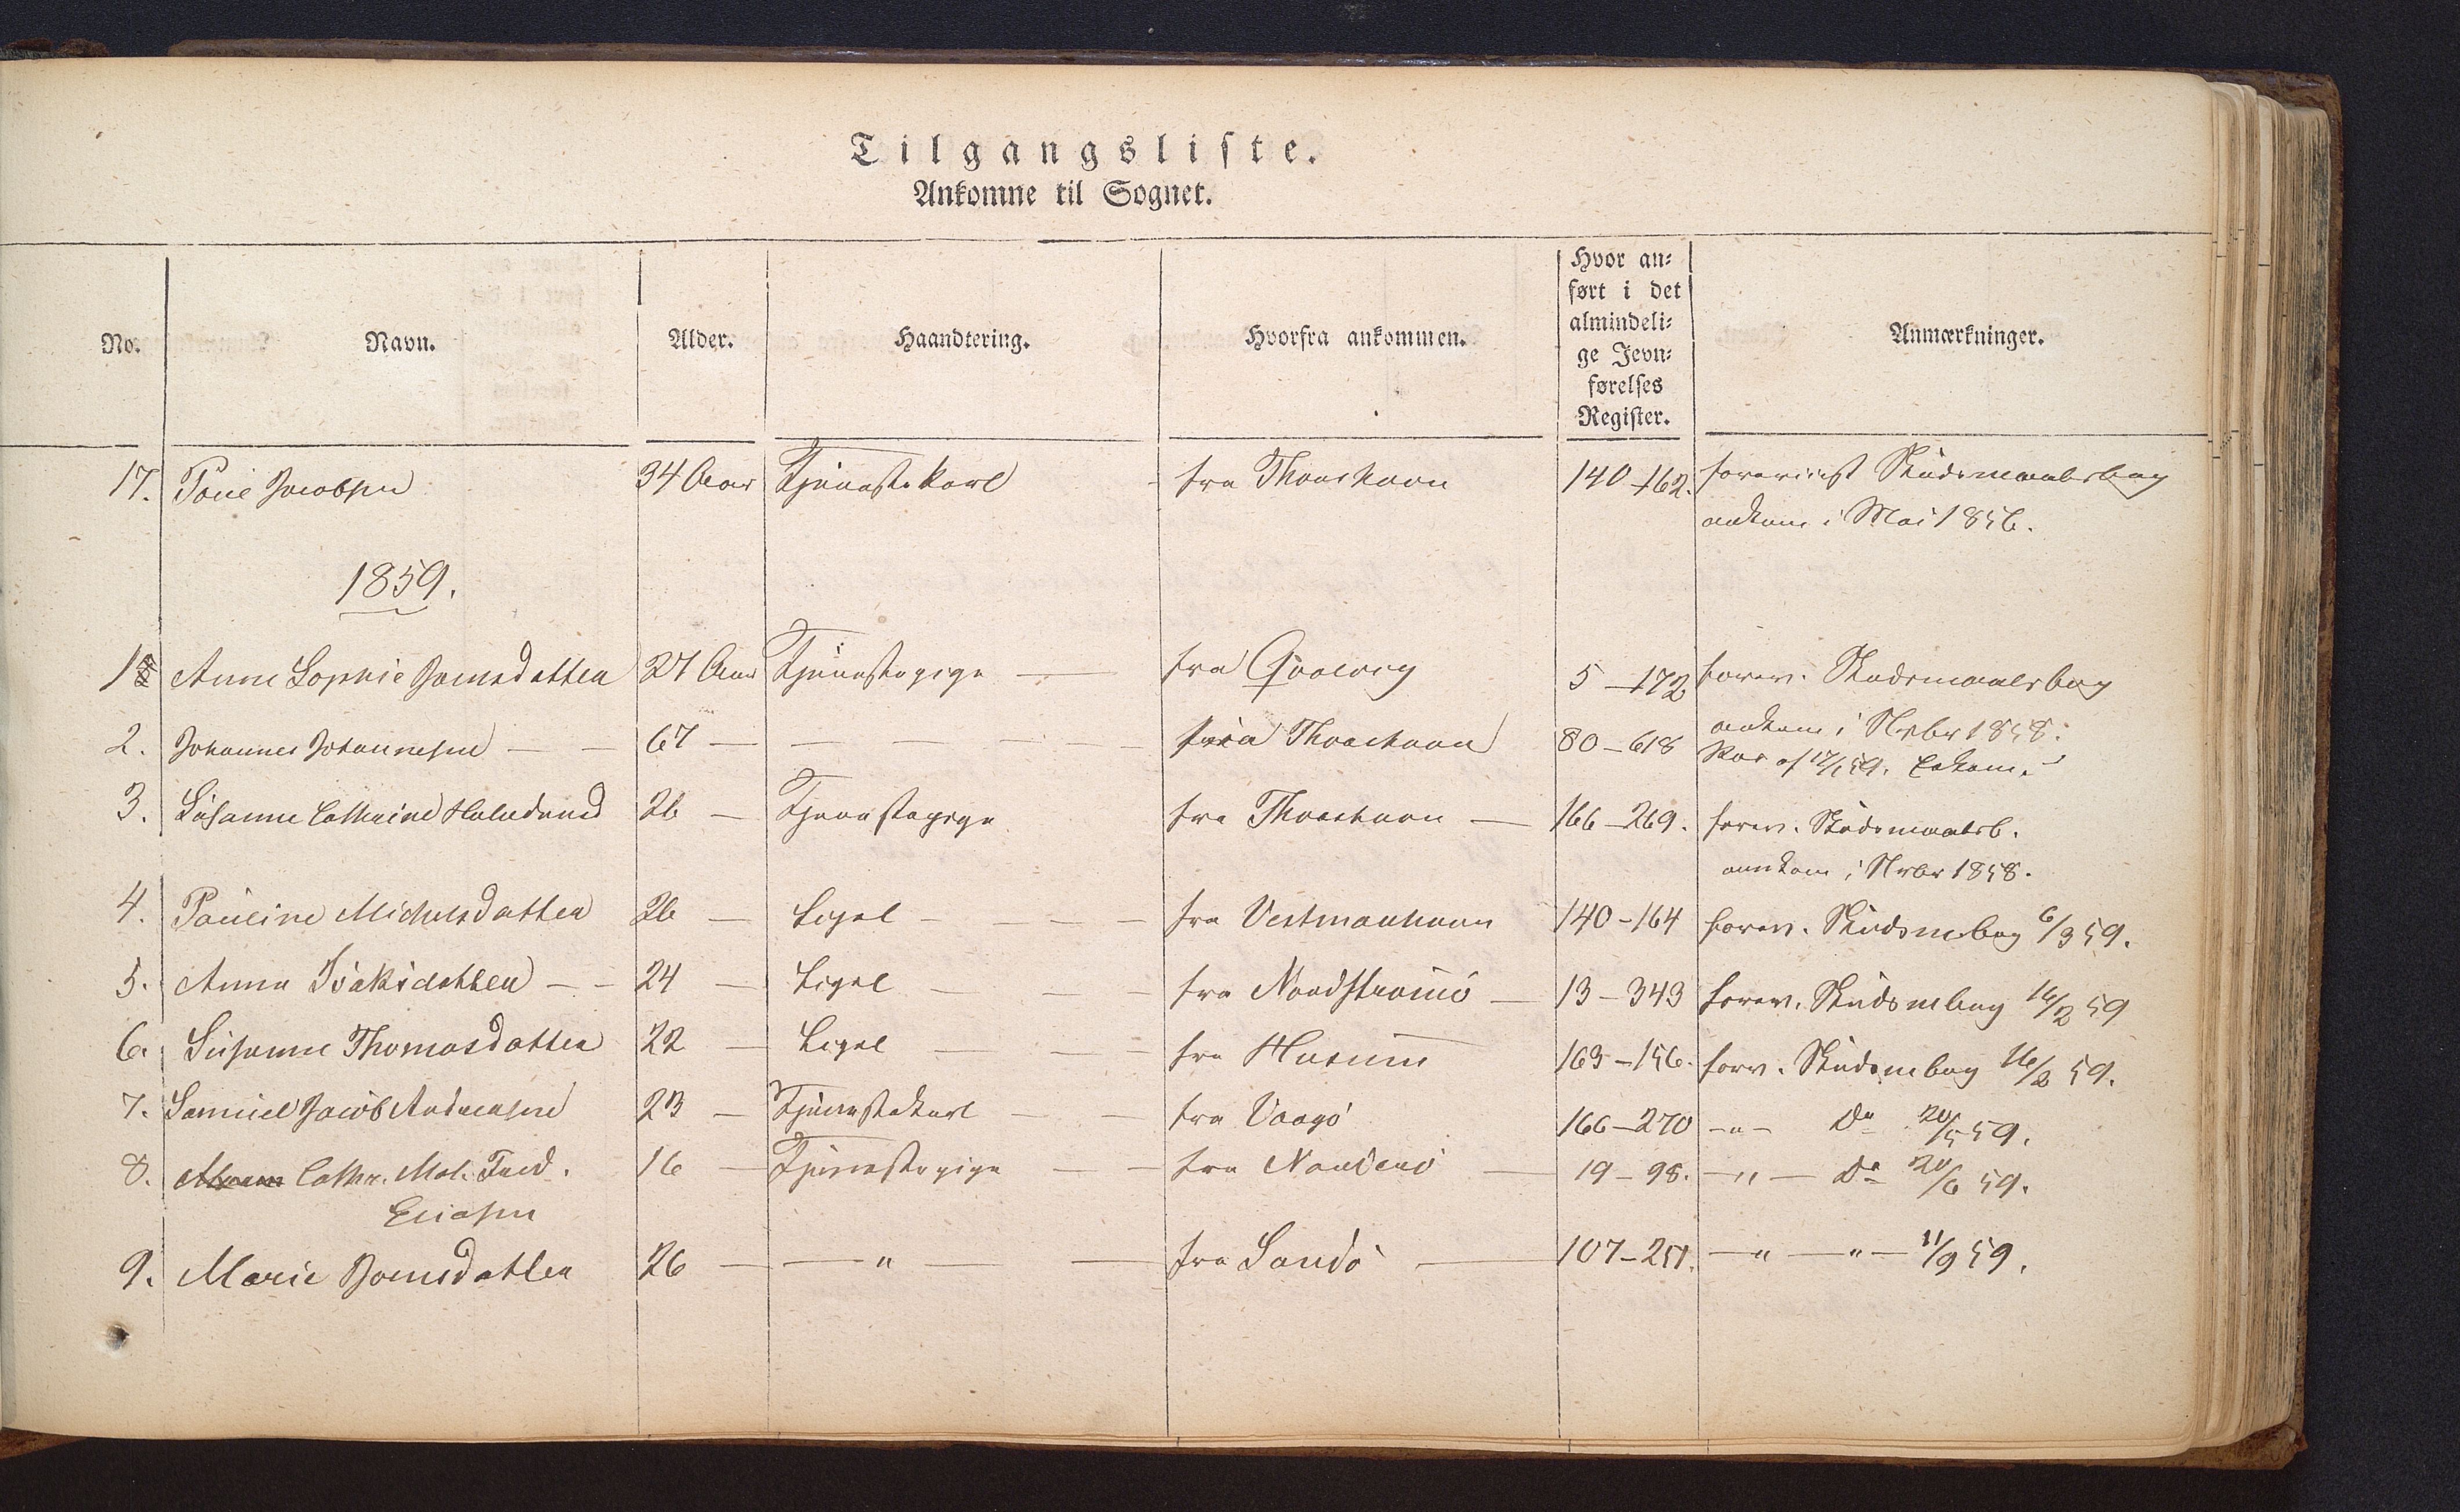 Tilgangsliste.
Ankomne til Sognet.
No. Navn. Alder. Haandtering. Hvorfra ankommen. Hvor an-
ført i det
almindeli-
ge Jevn-
førelses
Register. Anmærkninger.
17. Poul Jacobsen 34 Aar Tjenestekarl fra Thorshavn 140-162. foreviist Skudsmaalsbog
ankom i Mai 1856.
1859.
1 Anne Sophie Joensdatter 27 Aar Tjenestepige — fra Qvalvig 5-172 forev. Skudsmaalsbog
ankom i Nvbr 1858.
2. Johannes Johannesen — — 67 — — — — fra Thorshavn 80-618 af 17/1 59.
3. Susanne Cathrine 26 — Tjenestepige fra Thorshavn — 166-269. forev. Skudsmaalsb.
ankom i Nvbr 1858.
4. Pauline Michelsdatter 26 — Ligel — — — fra Vestmanhavn 140-164 forev. Skudsmbog 6/3 59.
5. Anna Isaksdatter — — 24 — Ligel — — — fra Nordstrømø — 13-343 forev. Skudsmbog 16/2 59
6. Susanne Thomasdatter 22 — Ligel — — — fra Husum 163-156. forv. Skudsmbog 16/2 59.
7. Samuel Jacob Andreasen 23 — Tjenestekarl — — fra Vaagø 166-270 -"- Do 20/5 59.
8. Cathr. Mal. Fred. 16 — Tjenestepige — — fra — 19-98. —"— Do 20/6 59.
Eliasen
9. Marie Joensdatter 26 — — " — — fra Sandø — 107-251. —"—"— 11/9 59.